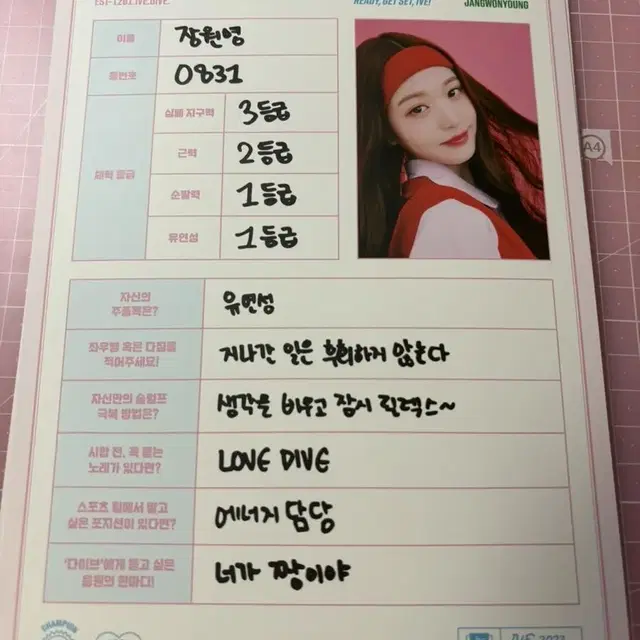 EST-1201.IVE.DIVE.
READY, GET SET, IVE!
JANGWONYOUNG
이름
장원영
등번호
0831
체력 등급
심폐 지구력
3등급
근력
2등급
순발력
1등급
유연성
1등급
A4
자신의
주종목은?
유연성
좌우명 혹은 다짐을
적어주세요!
지나간 일은 후회하지 않는다
자신만의 슬럼프
극복 방법은?
생각을 비우고 잠시 릴렉스~
시합 전, 꼭 듣는
노래가 있다면?
LOVE DIVE
스포츠 팀에서 맡고
싶은 포지션이 있다면?
에너지 담당
'다이브'에게 듣고 싶은
응원의 한마디!
너가 짱이야
CHAMPION
IVE 2023